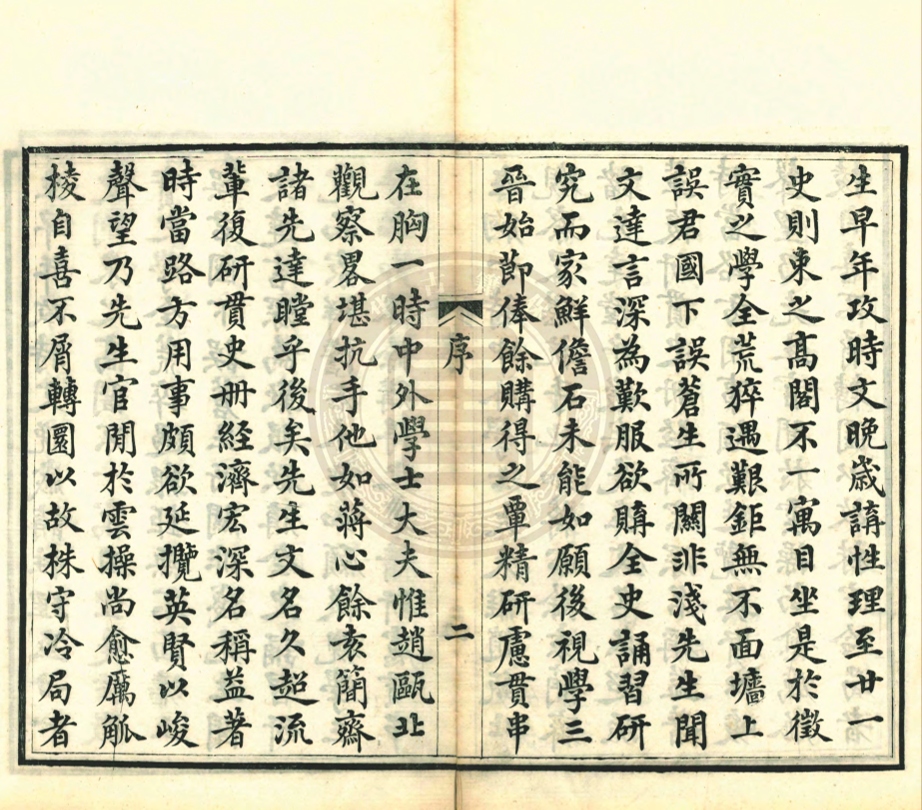 生早年攻時文晚歲講性理至廿一
史則束之高閣不一寓目坐是於徵
實之學全荒猝遇艱鉅無不面墻上
誤君國下誤蒼生所關非淺先生聞
文達言深為歎服欲購全史誦習研
究而家鮮儋石未能如願後視學三
晉始節俸餘購得之覃精研慮貫串
序
二
在胸一時中外學士大夫惟趙甌北
觀察畧堪抗手他如蔣心餘袁簡齋
諸先達瞠乎後矣先生文名久超流
軰復研貫史册經濟宏深名稱益著
時當路方用事頗欲延攬英賢以峻
聲望乃先生官閒於雲操尚愈厲觚
棱自喜不屑轉圜以故株守冷局者